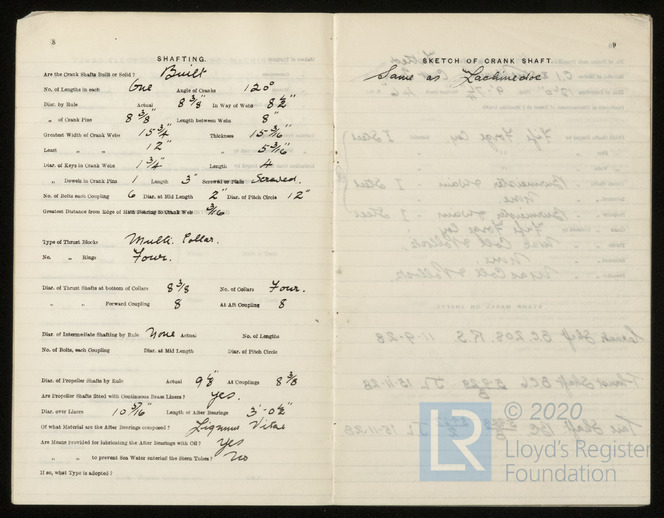 8
SHAFTING.
Are the Crank Shafts Built or Solid? Built
No. of Lengths in each One Angle of Cranks 120°
Diar. by Rule Actual 8 3/8" In Way of Webs 8 1/2"
„ of Crank Pins 8 3/8" Length between Webs 8"
Greatest Width of Crank Webs 15 3/4" Thickness
Least „ „ 12" „ 5 3/16"
Diar. of Keys in Crank Webs 1 3/4" Length 4
„ Dowels in Crank Pins 1 Length 3" Screwed or Plain Screwed.
No. of Bolts each Coupling 6 Diar. at Mid Length 2" Diar. of Pitch Circle 12"
Greatest Distance from Edge of Main Bearing to Crank Web 3/16
Type of Thrust Blocks Multi. Collar.
No. „ Rings Four.
Diar. of Thrust Shafts at bottom of Collars 8 3/8 No. of Collars Four.
„ „ Forward Coupling 8 At Aft Coupling 8
Diar. of Intermediate Shafting by Rule None Actual No. of Lengths
No. of Bolts, each Coupling Diar. at Mid Length Diar. of Pitch Circle
Diar. of Propeller Shafts by Rule Actual 9 1/8" At Couplings 8 3/8
Are Propeller Shafts fitted with Continuous Brass Liners? Yes.
Diar. over Liners 10 3/16" Length of After Bearings 3'-0 1/2"
Of what Material are the After Bearings composed? Lignum Vitae
Are Means provided for lubricating the After Bearings with Oil? Yes
„ „ to prevent Sea Water entering the Stern Tubes? No
If so, what Type is adopted?
9
SKETCH OF CRANK SHAFT.
Same as Lachinedoc
LR
© 2020
Lloyd's Register
Foundation